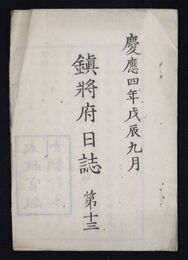 慶應四年戊辰九月
鎮將府日誌 第十三